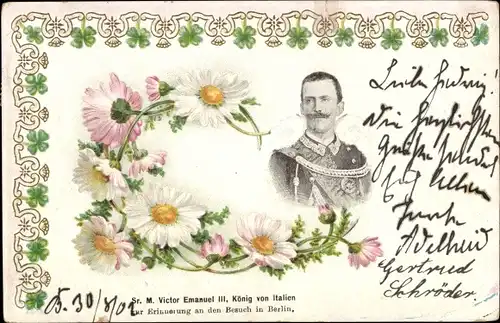 Liebe Hedwig.
Die herzlichsten
Grüße sendet
Euch Allen
Adelheid
Gertried
Schröder.
Sr. M. Victor Emanuel III, König von Italien
zur Erinnerung an den Besuch in Berlin.
B. 30/8/02